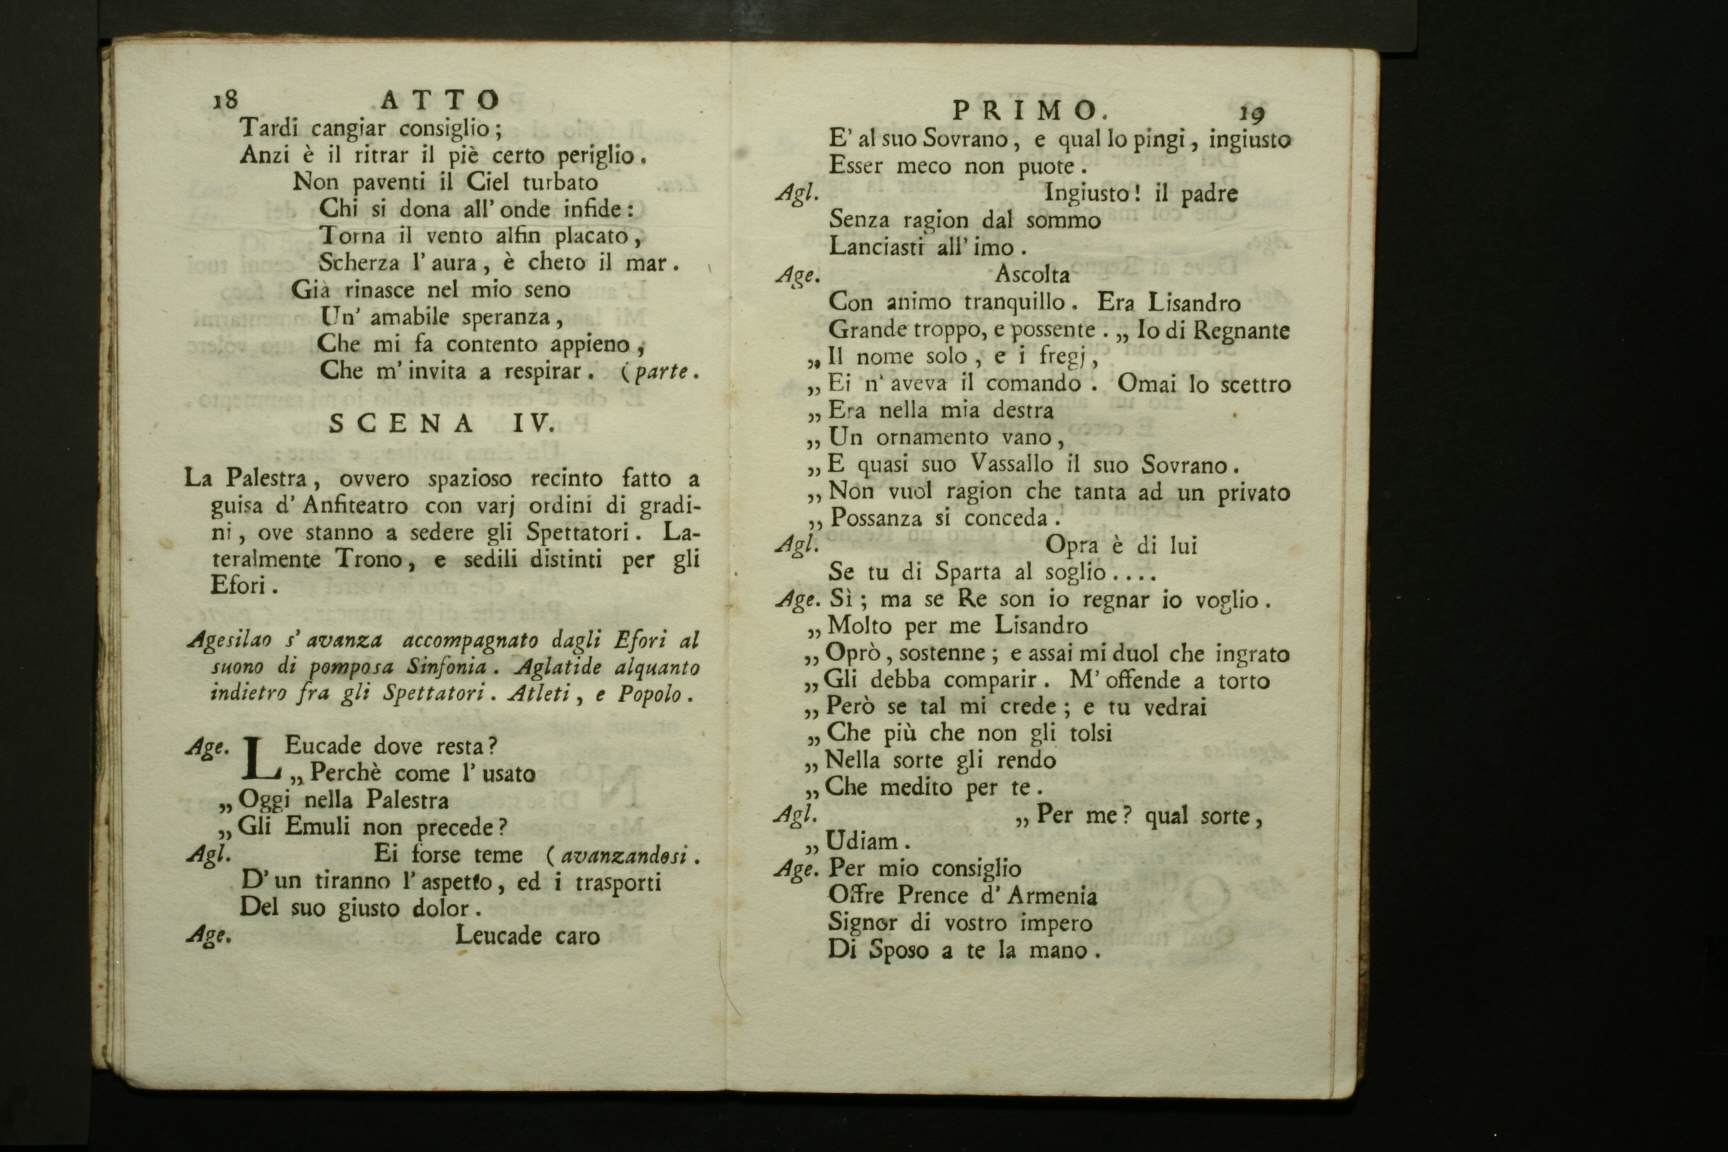 18 ATTO
Tardi cangiar consiglio ;
Anzi è il ritrar il piè certo periglio .
Non paventi il Ciel turbato
Chi si dona all' onde infide :
Torna il vento alfin placato ,
Scherza l' aura , è cheto il mar .
Già rinasce nel mio seno
Un' amabile speranza ,
Che mi fa contento appieno ,
Che m' invita a respirar . (parte .
SCENA IV.
La Palestra , ovvero spazioso recinto fatto a
guisa d' Anfiteatro con varj ordini di gradi-
ni , ove stanno a sedere gli Spettatori . La-
teralmente Trono , e sedili distinti per gli
Efori .
Agesilao s' avanza accompagnato dagli Efori al
suono di pomposa Sinfonia . Aglatide alquanto
indietro fra gli Spettatori . Atleti , e Popolo .
Age. LEucade dove resta ?
„ Perchè come l' usato
„ Oggi nella Palestra
„ Gli Emuli non precede ?
Agl. Ei forse teme (avanzandosi .
D' un tiranno l' aspetto , ed i trasporti
Del suo giusto dolor .
Age. Leucade caro
PRIMO. 19
E' al suo Sovrano , e qual lo pingi , ingiusto
Esser meco non puote .
Agl. Ingiusto ! il padre
Senza ragion dal sommo
Lanciasti all' imo .
Age. Ascolta
Con animo tranquillo . Era Lisandro
Grande troppo, e possente . „ Io di Regnante
„ Il nome solo , e i fregj ,
„ Ei n' aveva il comando . Omai lo scettro
„ Era nella mia destra
„ Un ornamento vano ,
„ E quasi suo Vassallo il suo Sovrano .
„ Non vuol ragion che tanta ad un privato
„ Possanza si conceda .
Agl. Opra è di lui
Se tu di Sparta al soglio ....
Age. Sì ; ma se Re son io regnar io voglio .
„ Molto per me Lisandro
„ Oprò , sostenne ; e assai mi duol che ingrato
„ Gli debba comparir . M' offende a torto
„ Però se tal mi crede ; e tu vedrai
„ Che più che non gli tolsi
„ Nella sorte gli rendo
„ Che medito per te .
Agl. „ Per me ? qual sorte ,
„ Udiam .
Age. Per mio consiglio
Offre Prence d' Armenia
Signor di vostro impero
Di Sposo a te la mano .